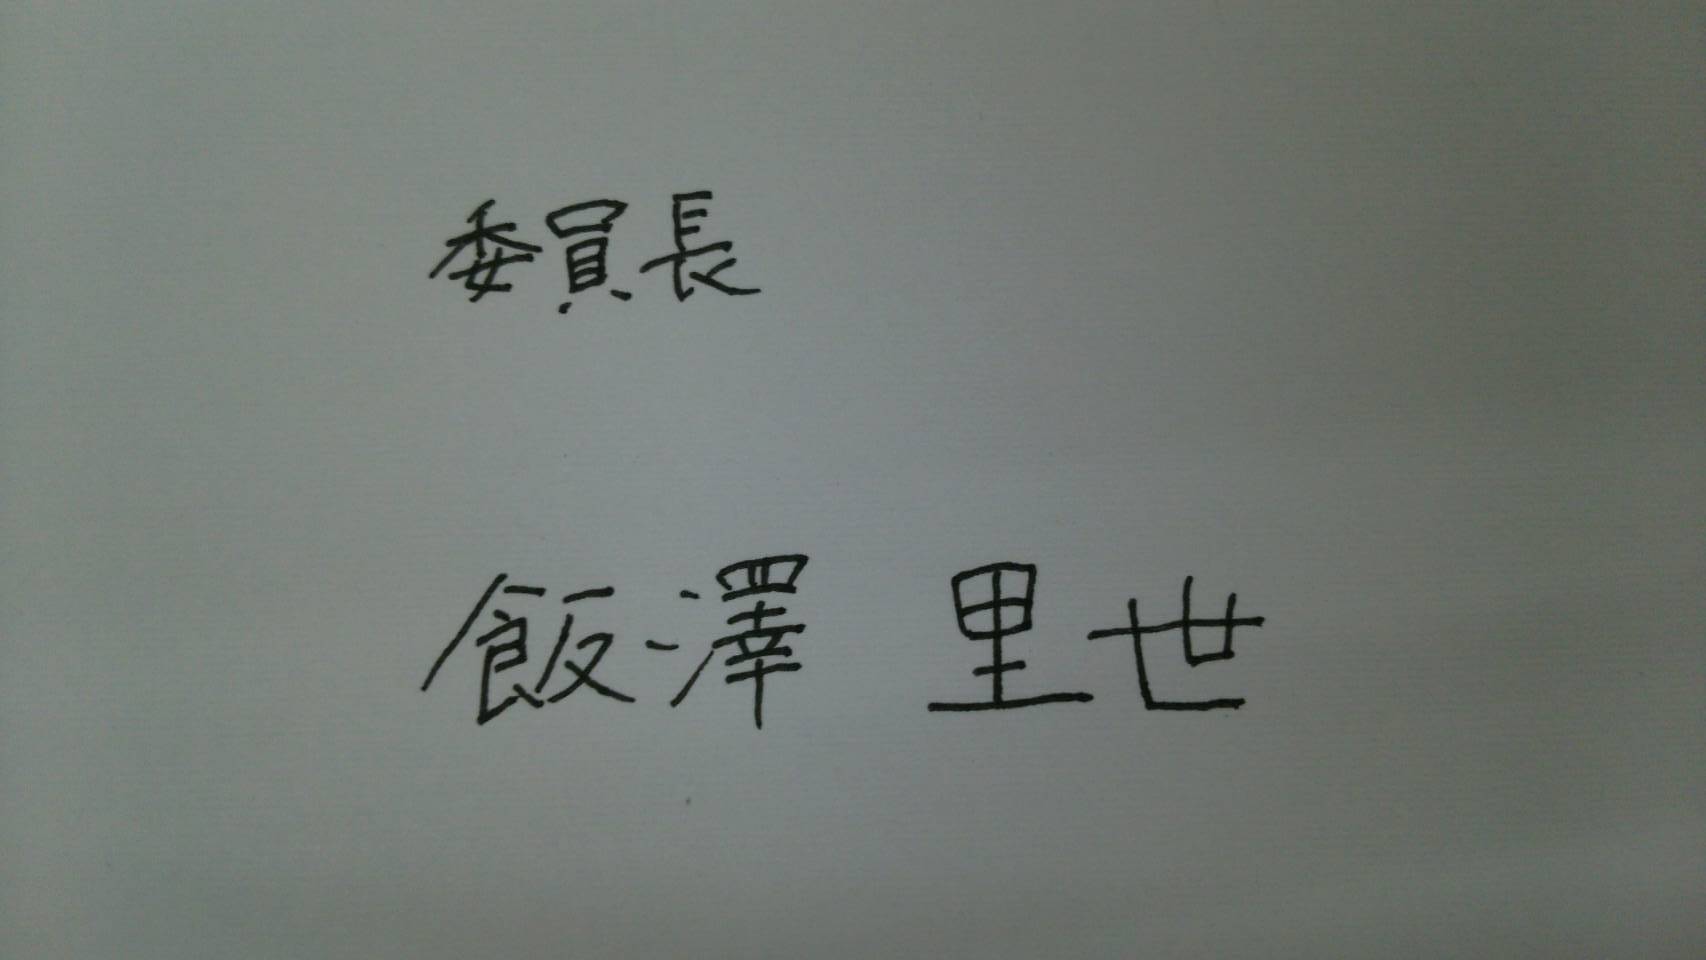 委員長
飯澤 里世